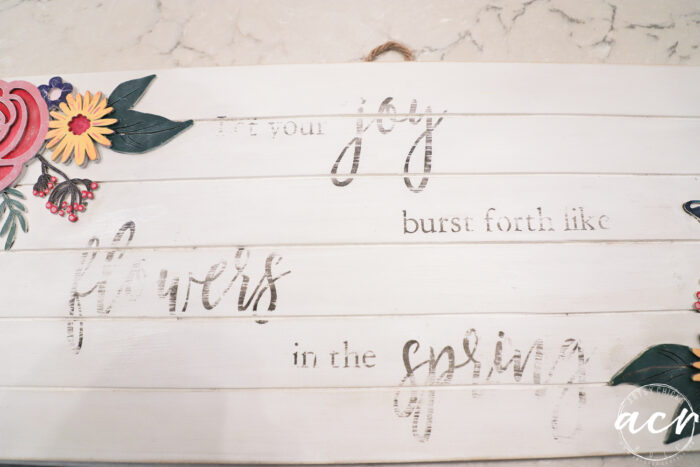 Let your joy
burst forth like
flowers
in the spring
acr